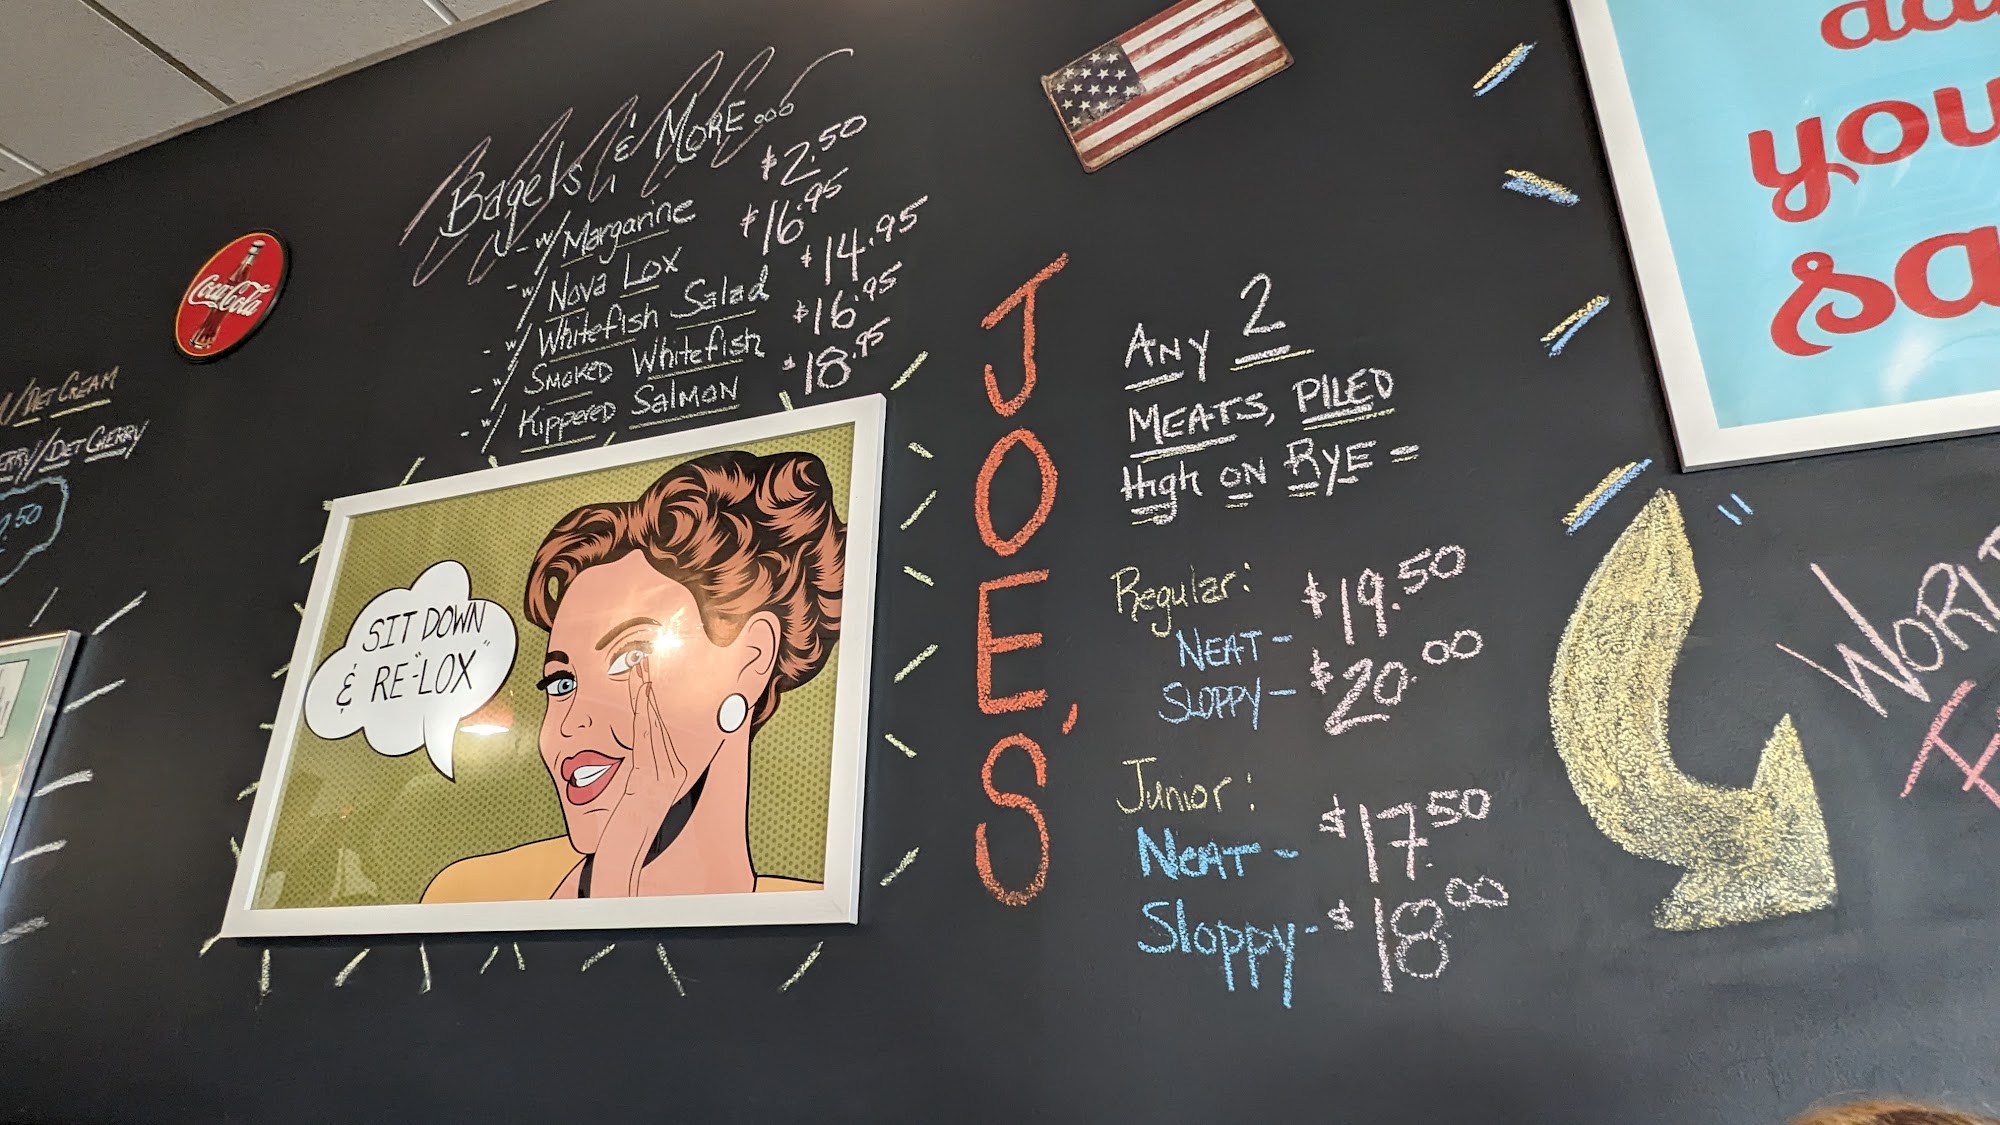 Bagels & MORE...
- w/ Margarine $2.50
- w/ Nova Lox $16.95
- w/ Whitefish Salad $14.95
- w/ Smoked Whitefish $16.95
- w/ Kippered Salmon $18.95
Coca-Cola
DIET CREAM
DIET CHERRY
SIT DOWN
& RE-"LOX"
JOE'S
ANY 2
MEATS, PILED
High ON RYE =
Regular:
NEAT - $19.50
SLOPPY - $20.00
Junior:
NEAT - $17.50
Sloppy - $18.00
you